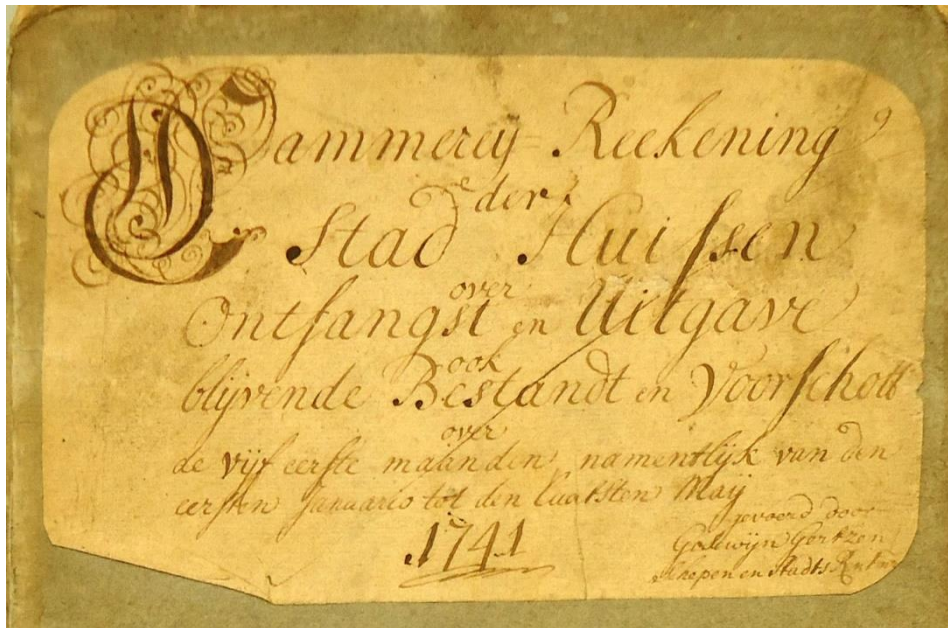 Cammerey-Reekening
der
Stad Huissen
over
Ontfangst en Uitgave
ook
blijvende Bestandt en Voorschott
over
de vijf eerste maanden namentlijk van den
eersten Januario tot den laatsten Maij
1741
gevoerd door
Goswijn Gertzen
Schepen en Stadts Rentmr